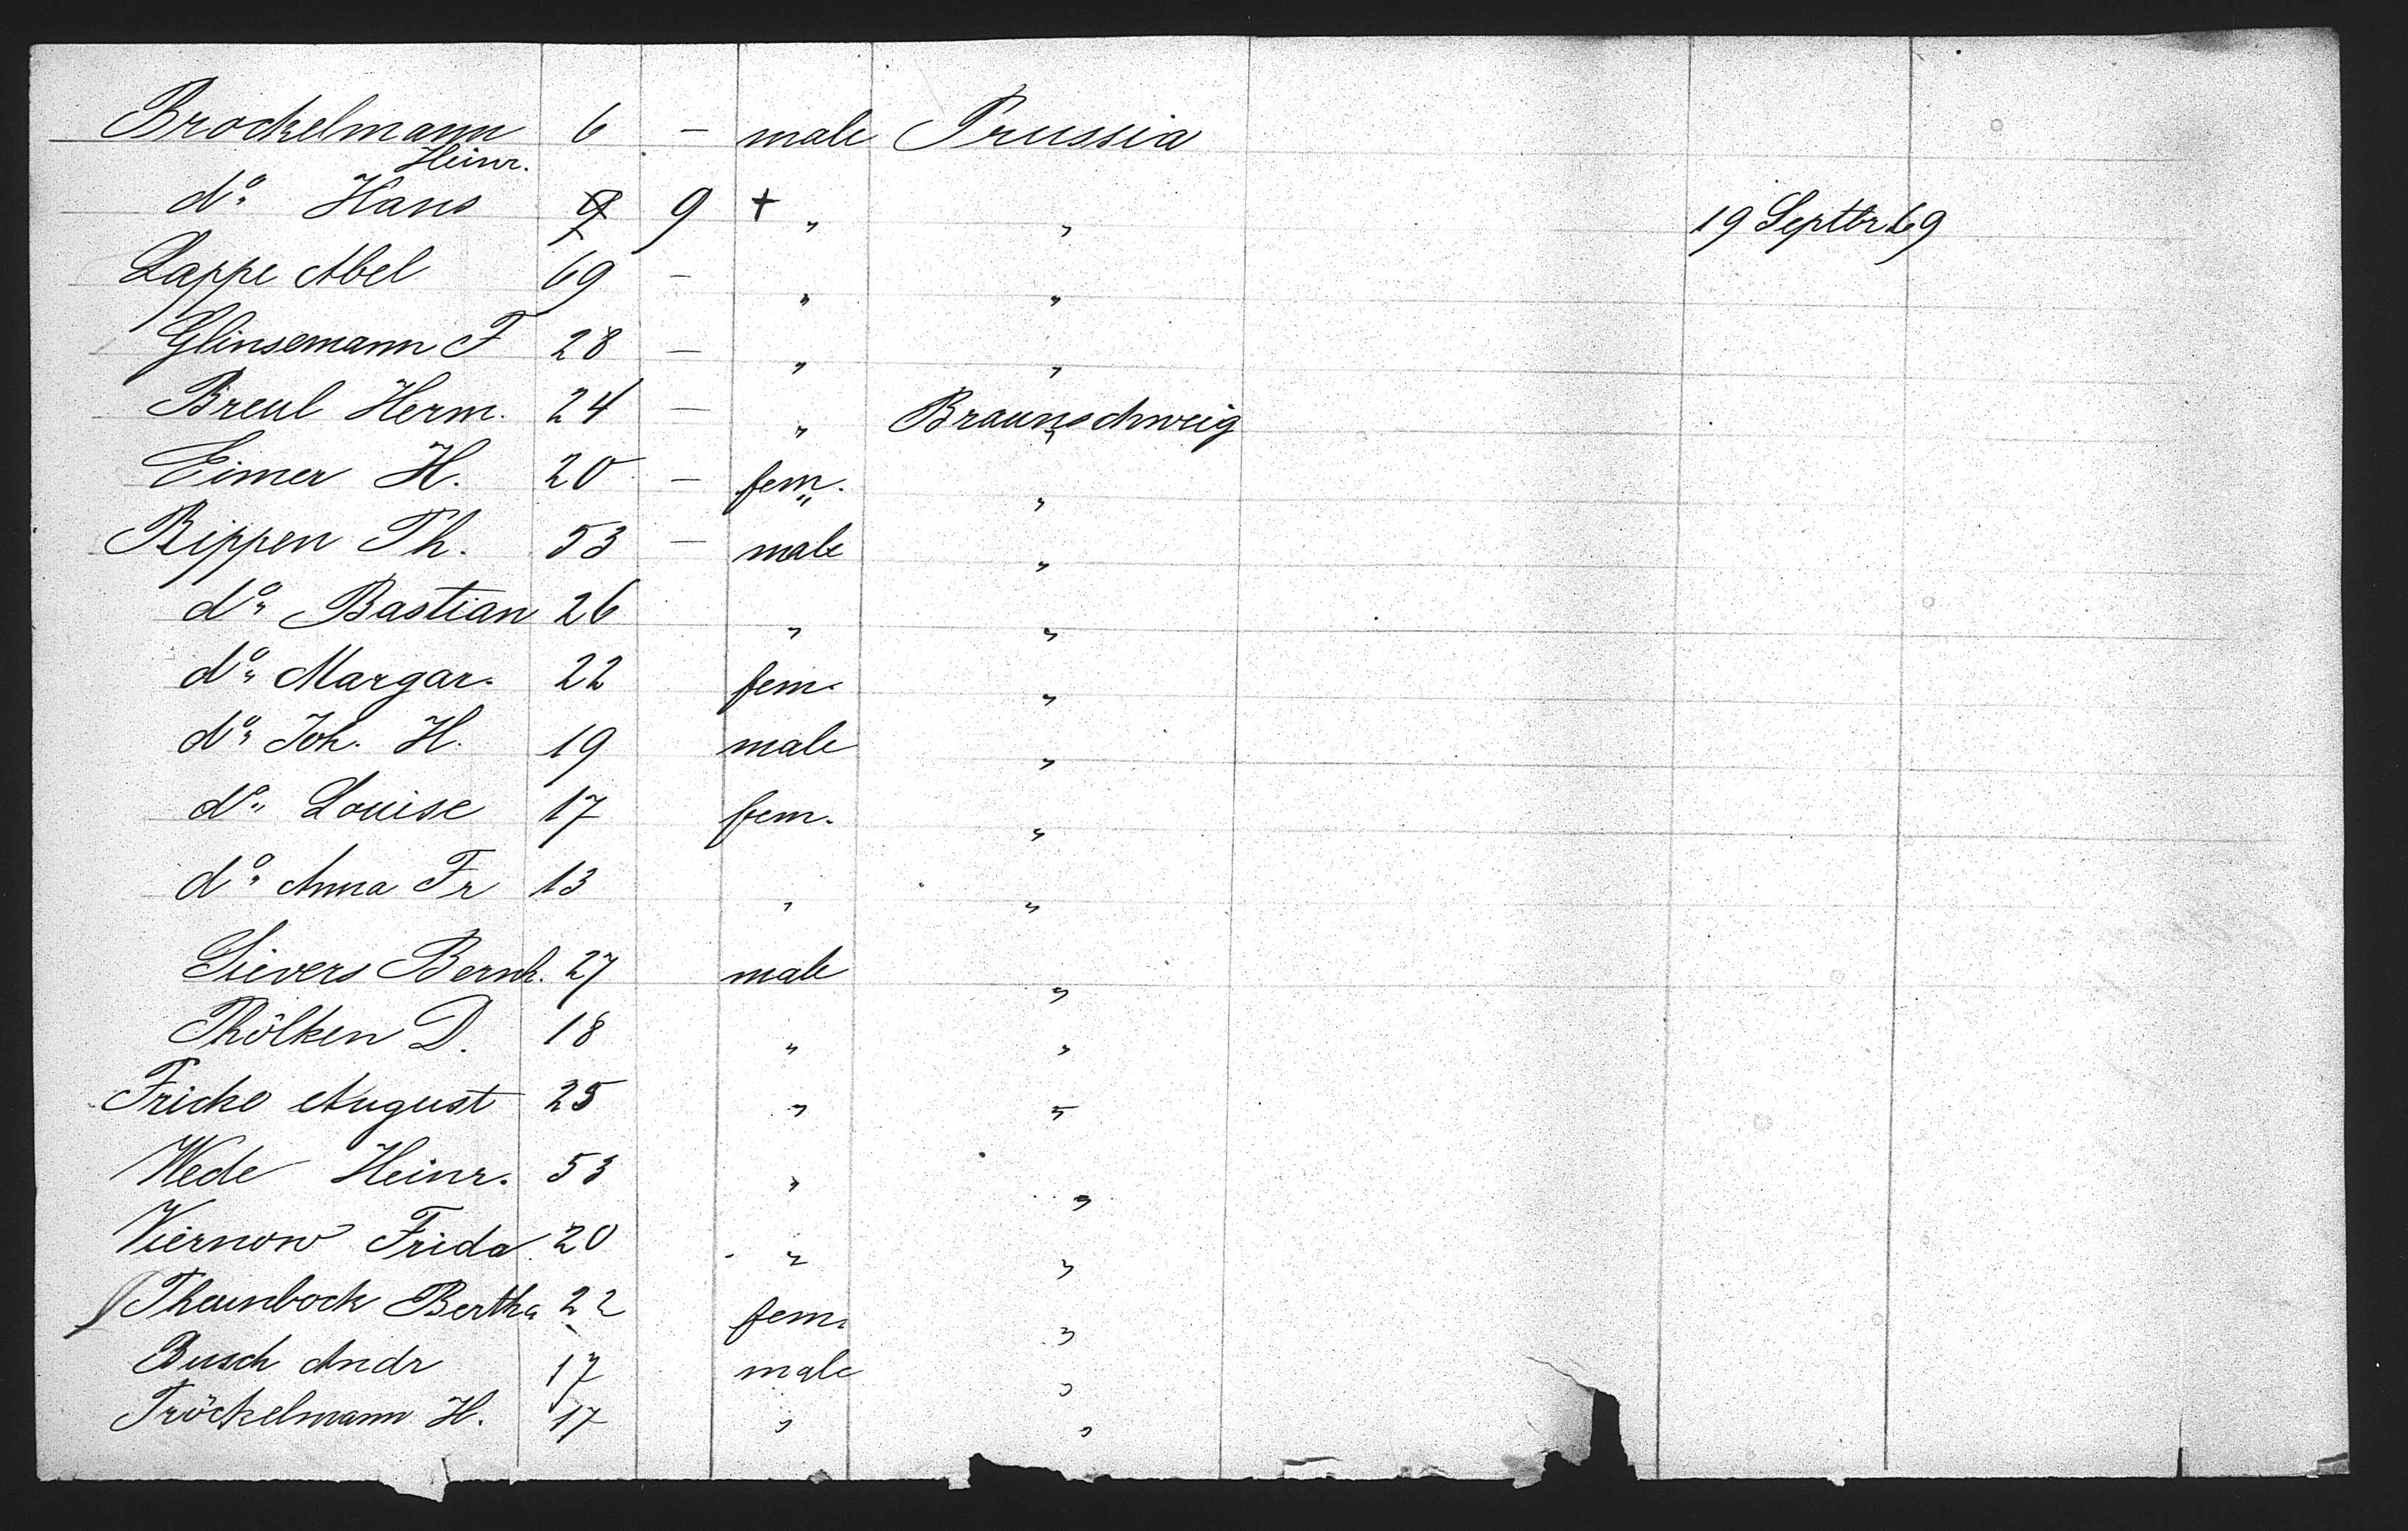 Brockelmann Heinr. 6 — male Prussia
do Hans 9 + " " 19 Septbr 69
Lappe Abel 69 — " "
Glinsemann F 28 — " "
Breul Herm. 24 — " Braunschweig
Eimer H. 20 — fem. "
Rippen Th. 53 — male "
do Bastian 26 " "
do Margar. 22 fem. "
do Joh. H. 19 male "
do Louise 17 fem. "
do Anna Fr 13 " "
Sievers Bernh. 27 male "
Thölken D. 18 " "
Fricke August 25 " "
Wede Heinr. 53 " "
Viernow Frida 20 " "
Bertha 22 fem. "
Busch Andr 17 male "
Tröckelmann H. 17 " "